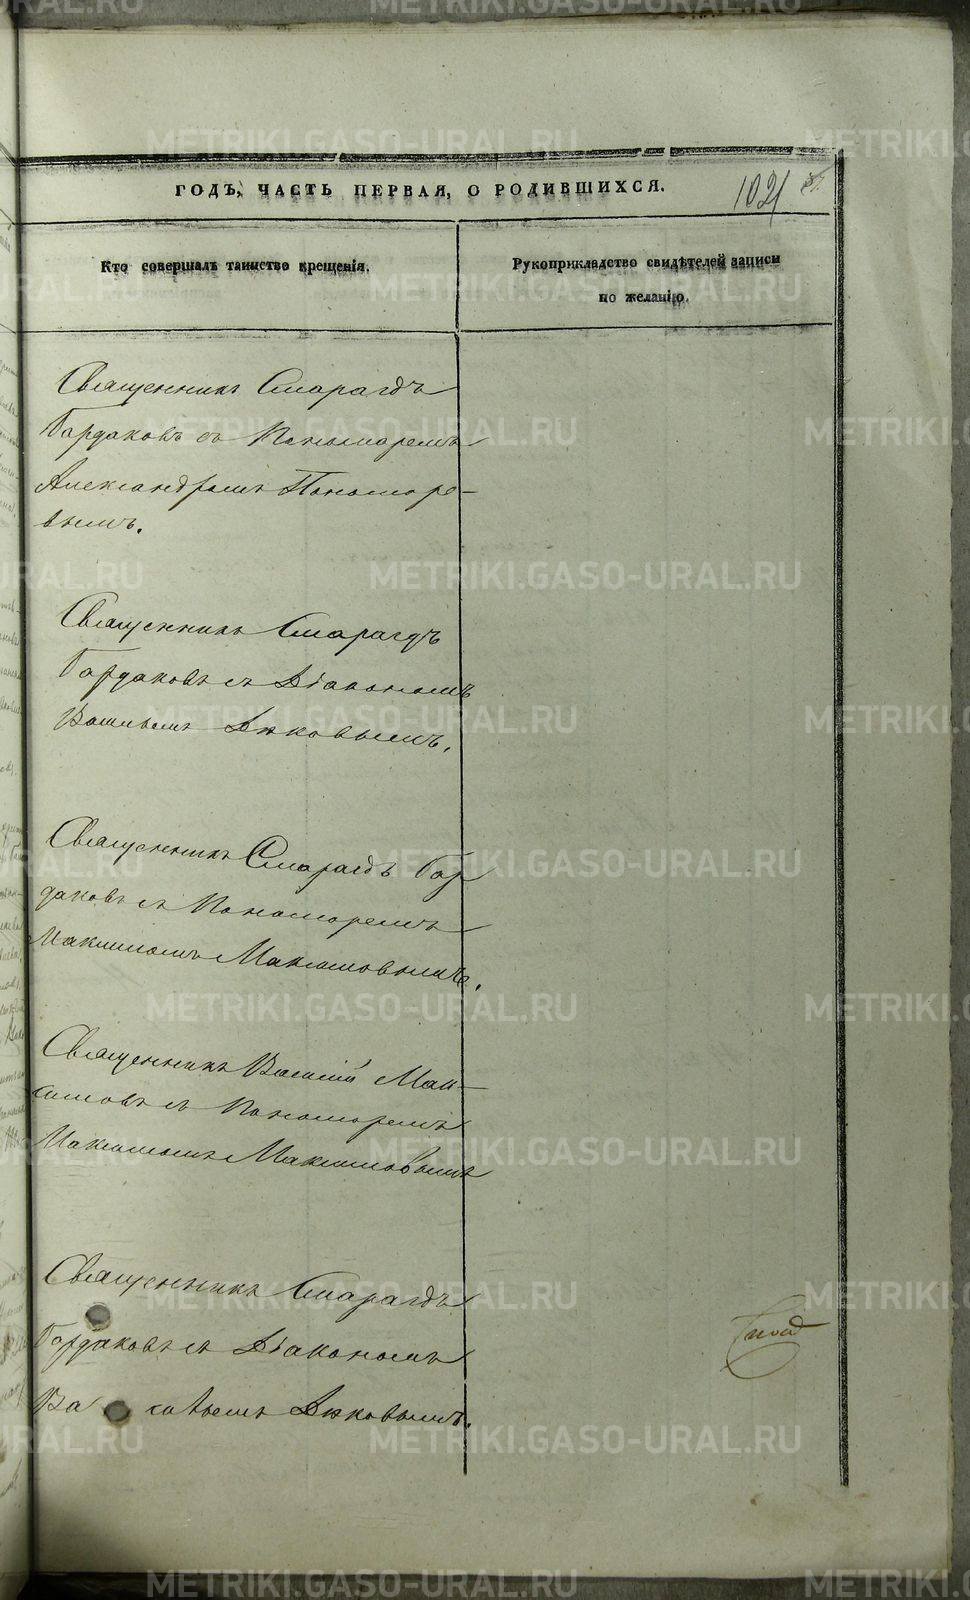 ГОДЪ, ЧАСТЬ ПЕРВАЯ, О РОДИВШИХСЯ.
1021
Кто совершалъ таинство крещенія.
Рукоприкладство свидѣтелей записи
по желанію.
Священникъ Смарагдъ
Бардаковъ съ Пономаремъ
Александромъ Пономаре-
вымъ.
Священникъ Смарагдъ
Бардаковъ съ Діакономъ
Дяковымъ.
Священникъ Смарагдъ Бар
даковъ съ Пономаремъ
Максимомъ Максимовымъ.
Священникъ Василій Мак-
симовъ съ Пономаремъ
Максимомъ Максимовымъ
Священникъ Смарагдъ
Бардаковъ съ Діакономъ
Дяковымъ.
METRIKI.GASO-URAL.RU